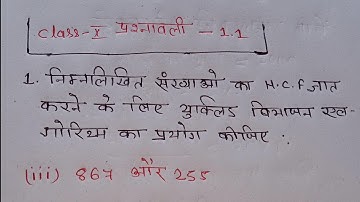 class-X प्रश्नावली - 1.1
1. निम्नलिखित संख्याओ का H.C.F ज्ञात
करने के लिए युक्लिड विभाजन एल-
गोरिथ्म का प्रयोग कीजिए :
(iii) 867 और 255